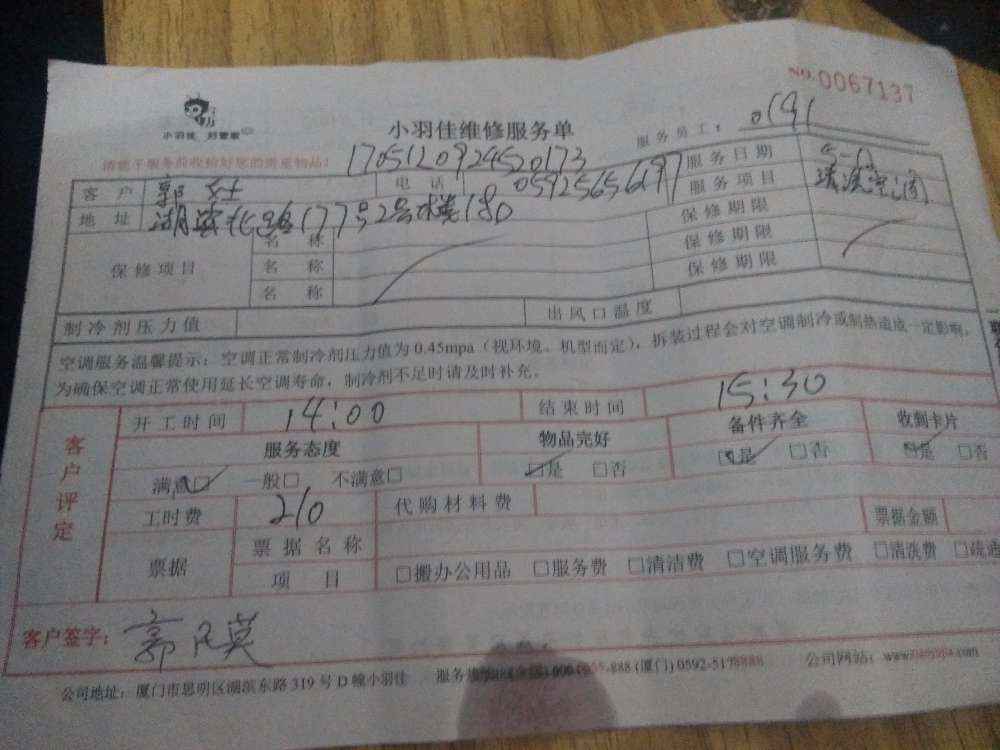 NO.0067137
小羽佳 好管家
小羽佳维修服务单
服务员工: 0191
请您于服务前收拾好您的贵重物品!
17051209245520173
客户 郭女士 电话 05925656197 服务日期 5-12
地址 湖滨北路177号2号楼180 服务项目 清洗空调
保修项目 名称 保修期限
名称 保修期限
名称 保修期限
制冷剂压力值 出风口温度
空调服务温馨提示:空调正常制冷剂压力值为0.45mpa(视环境、机型而定),拆装过程会对空调制冷或制热造成一定影响,
为确保空调正常使用延长空调寿命,制冷剂不足时请及时补充。
客户评定
开工时间 14:00 结束时间 15:30
服务态度 物品完好 备件齐全 收到卡片
满意□ 一般□ 不满意□ □是 □否 □是 □否 □是 □否
工时费 210 代购材料费
票据 票据名称 票据金额
项目 □搬办公用品 □服务费 □清洁费 □空调服务费 □清洗费 □疏通
客户签字:郭
公司地址:厦门市思明区湖滨东路319号D幢小羽佳 服务热线 (厦门) 0592-5178888 公司网站: